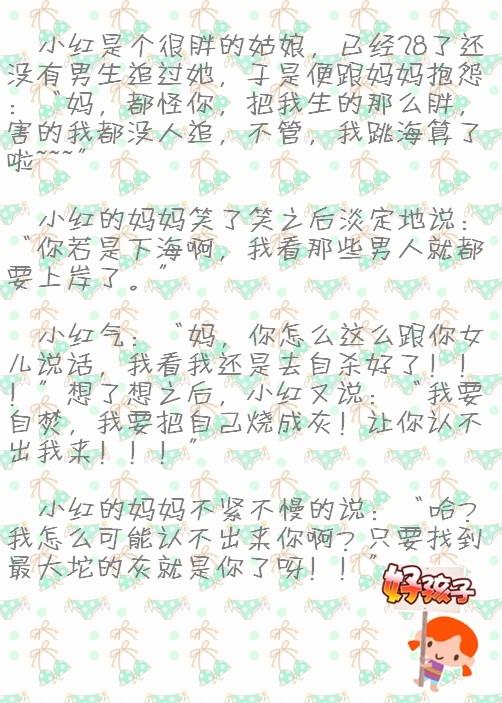 小红是个很胖的姑娘，已经28了还
没有男生追过她，于是便跟妈妈抱怨
：“妈，都怪你，把我生的那么胖，
害的我都没人追，不管，我跳海算了
啦~~~”
小红的妈妈笑了笑之后淡定地说：
“你若是下海啊，我看那些男人就都
要上岸了。”
小红气：“妈，你怎么这么跟你女
儿说话，我看我还是去自杀好了！！
！”想了想之后，小红又说：“我要
自焚，我要把自己烧成灰！让你认不
出我来！！！”
小红的妈妈不紧不慢的说：“哈？
我怎么可能认不出来你啊？只要找到
最大坨的灰就是你了呀！！”
好孩子